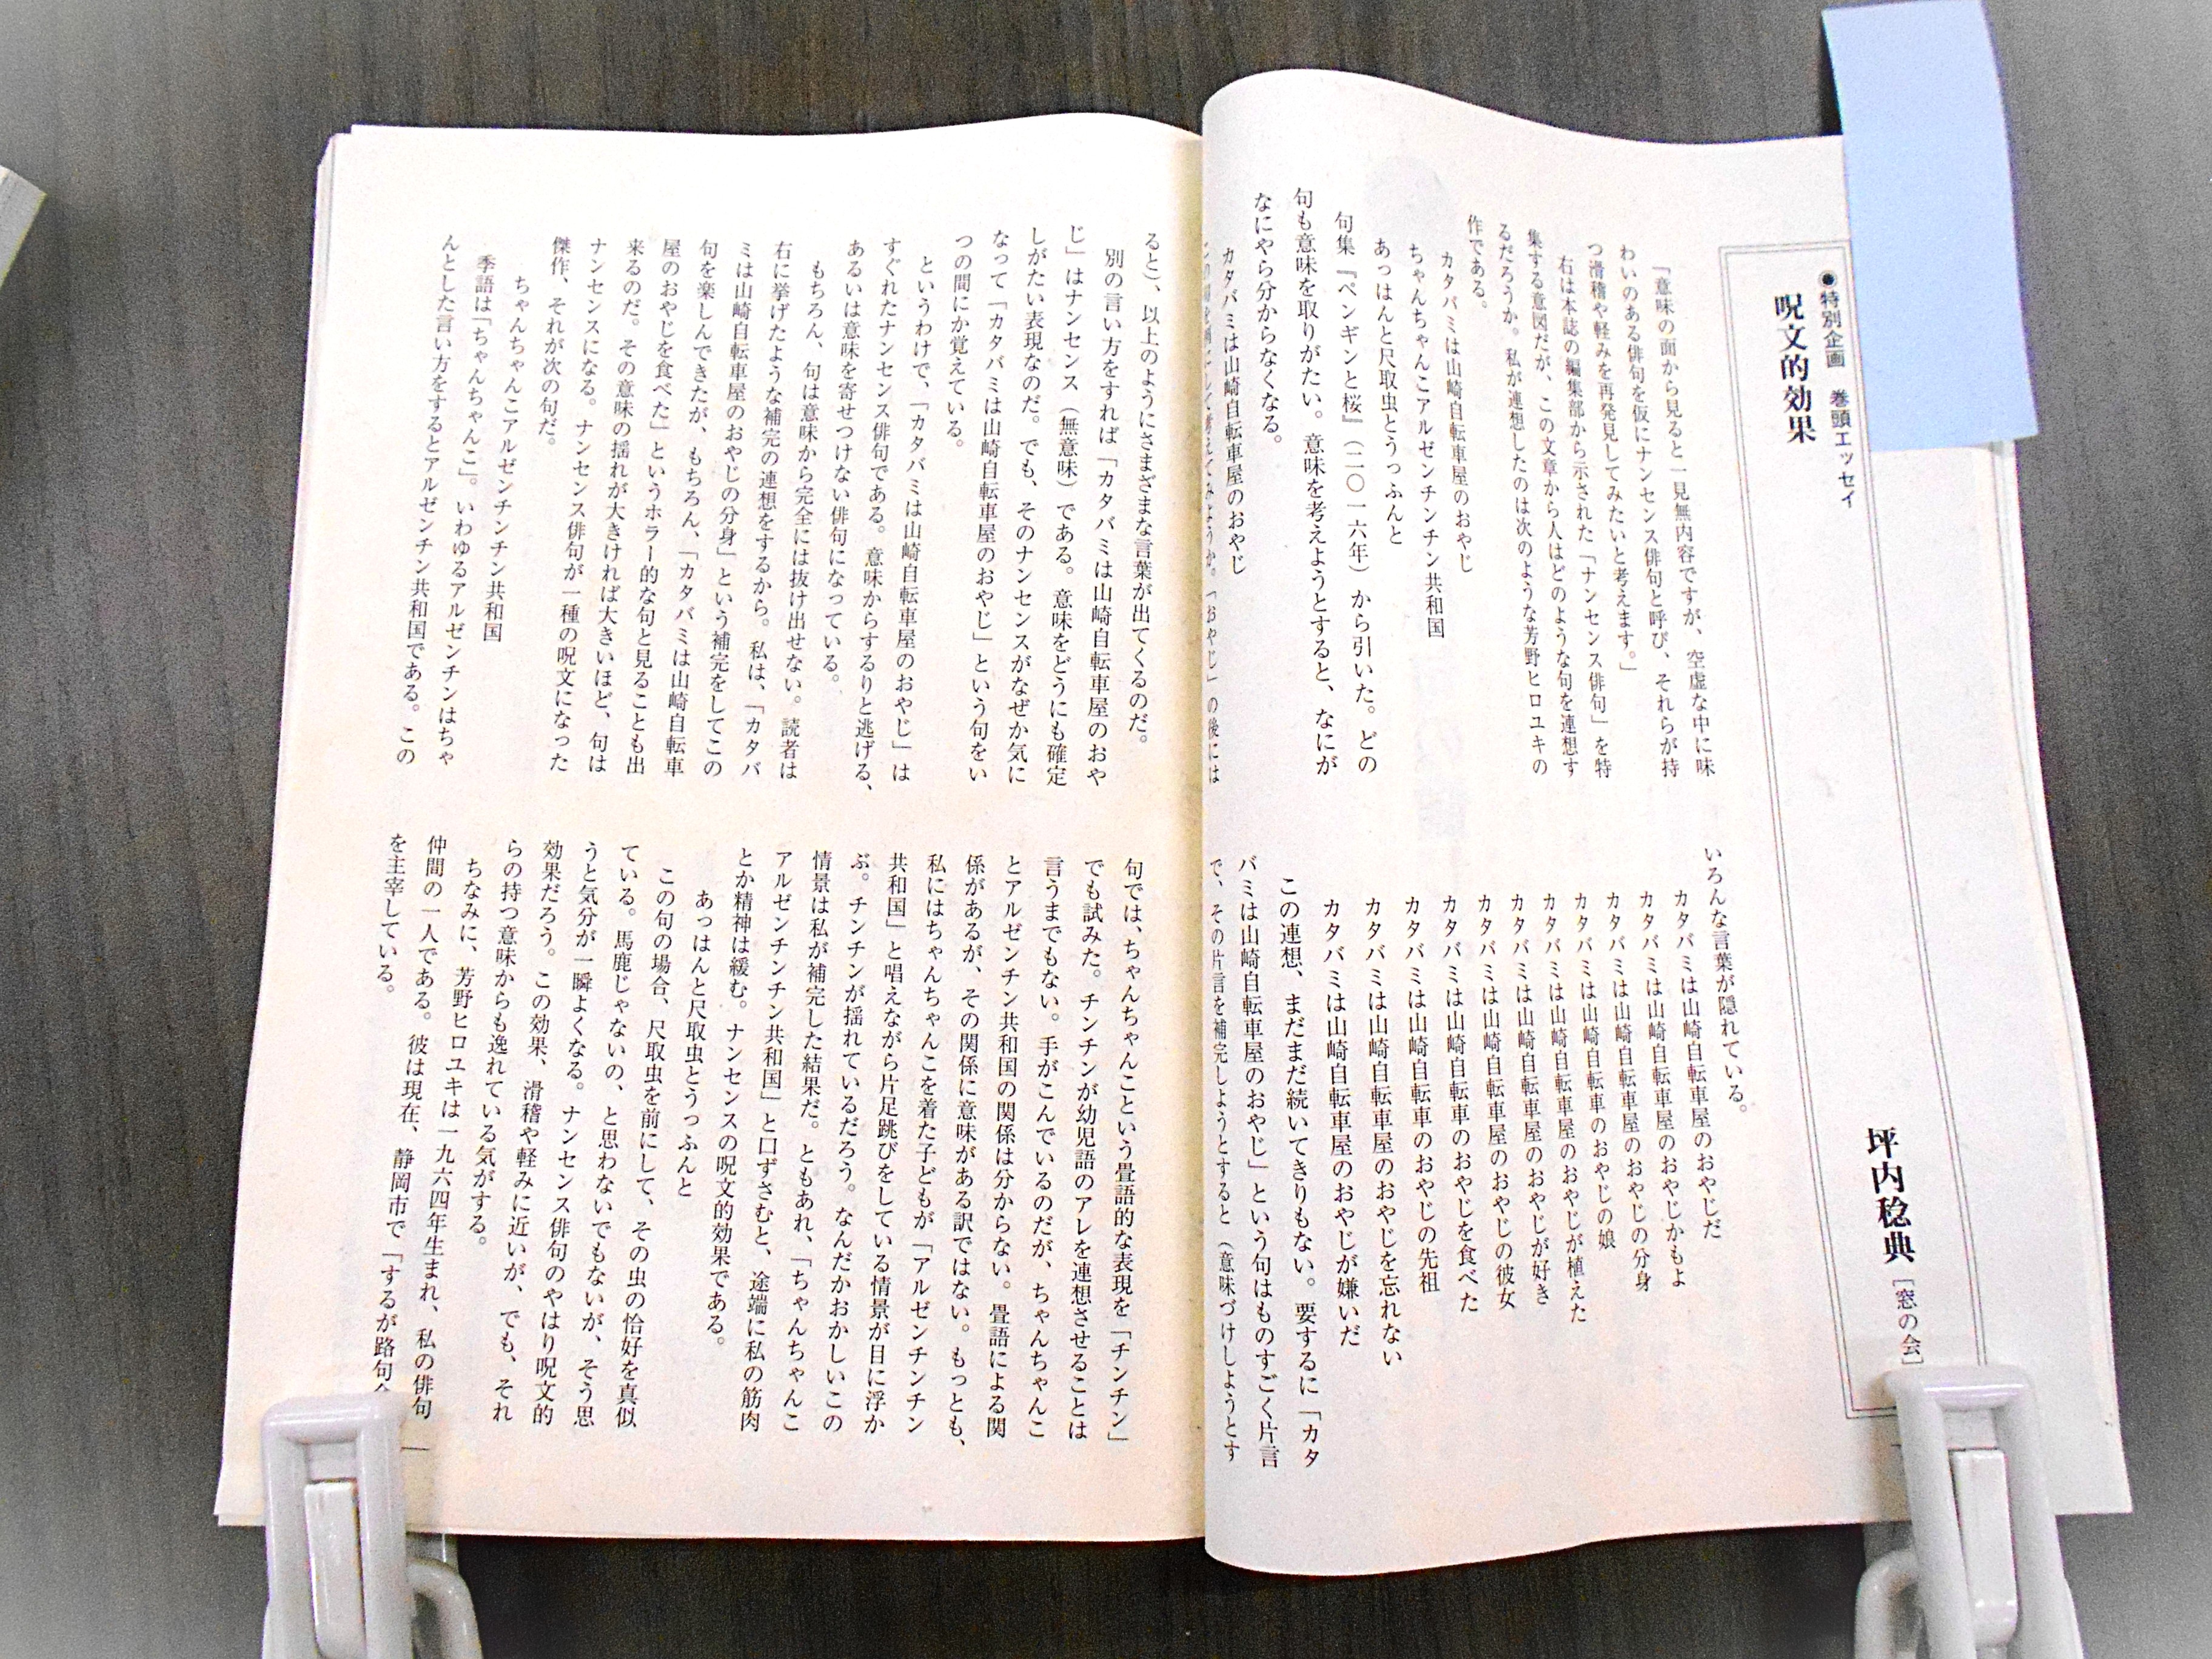 ●特別企画　巻頭エッセイ
呪文的効果
坪内稔典［窓の会］
「意味の面から見ると一見無内容ですが、空虚な中に味
わいのある俳句を仮にナンセンス俳句と呼び、それらが持
つ滑稽や軽みを再発見してみたいと考えます。」
右は本誌の編集部から示された「ナンセンス俳句」を特
集する意図だが、この文章から人はどのような句を連想す
るだろうか。私が連想したのは次のような芳野ヒロユキの
作である。
カタバミは山崎自転車屋のおやじ
ちゃんちゃんこアルゼンチンチン共和国
あっはんと尺取虫とうっふんと
句集『ペンギンと桜』（二〇一六年）から引いた。どの
句も意味を取りがたい。意味を考えようとすると、なにが
なにやら分からなくなる。
カタバミは山崎自転車屋のおやじ
この句を例にして考えてみようか。「おやじ」の後には
いろんな言葉が隠れている。
カタバミは山崎自転車屋のおやじだ
カタバミは山崎自転車屋のおやじかもよ
カタバミは山崎自転車屋のおやじの分身
カタバミは山崎自転車のおやじの娘
カタバミは山崎自転車屋のおやじが植えた
カタバミは山崎自転車屋のおやじが好き
カタバミは山崎自転車屋のおやじの彼女
カタバミは山崎自転車のおやじを食べた
カタバミは山崎自転車のおやじの先祖
カタバミは山崎自転車屋のおやじを忘れない
カタバミは山崎自転車屋のおやじが嫌いだ
この連想、まだまだ続いてきりもない。要するに「カタ
バミは山崎自転車屋のおやじ」という句はものすごく片言
で、その片言を補完しようとすると（意味づけしようとす
ると）、以上のようにさまざまな言葉が出てくるのだ。
別の言い方をすれば「カタバミは山崎自転車屋のおや
じ」はナンセンス（無意味）である。意味をどうにも確定
しがたい表現なのだ。でも、そのナンセンスがなぜか気に
なって「カタバミは山崎自転車屋のおやじ」という句をい
つの間にか覚えている。
というわけで、「カタバミは山崎自転車屋のおやじ」は
すぐれたナンセンス俳句である。意味からするりと逃げる、
あるいは意味を寄せつけない俳句になっている。
もちろん、句は意味から完全には抜け出せない。読者は
右に挙げたような補完の連想をするから。私は、「カタバ
ミは山崎自転車屋のおやじの分身」という補完をしてこの
句を楽しんできたが、もちろん、「カタバミは山崎自転車
屋のおやじを食べた」というホラー的な句と見ることも出
来るのだ。その意味の揺れが大きければ大きいほど、句は
ナンセンスになる。ナンセンス俳句が一種の呪文になった
傑作、それが次の句だ。
ちゃんちゃんこアルゼンチンチン共和国
季語は「ちゃんちゃんこ」。いわゆるアルゼンチンはちゃ
んとした言い方をするとアルゼンチン共和国である。この
句では、ちゃんちゃんこという畳語的な表現を「チンチン」
でも試みた。チンチンが幼児語のアレを連想させることは
言うまでもない。手がこんでいるのだが、ちゃんちゃんこ
とアルゼンチンチン共和国の関係は分からない。畳語による関
係があるが、その関係に意味がある訳ではない。もっとも、
私にはちゃんちゃんこを着た子どもが「アルゼンチンチン
共和国」と唱えながら片足跳びをしている情景が目に浮か
ぶ。チンチンが揺れているだろう。なんだかおかしいこの
情景は私が補完した結果だ。ともあれ、「ちゃんちゃんこ
アルゼンチンチン共和国」と口ずさむと、途端に私の筋肉
とか精神は緩む。ナンセンスの呪文的効果である。
あっはんと尺取虫とうっふんと
この句の場合、尺取虫を前にして、その虫の恰好を真似
ている。馬鹿じゃないの、と思わないでもないが、そう思
うと気分が一瞬よくなる。ナンセンス俳句のやはり呪文的
効果だろう。この効果、滑稽や軽みに近いが、でも、それ
らの持つ意味からも逸れている気がする。
ちなみに、芳野ヒロユキは一九六四年生まれ、私の俳句
仲間の一人である。彼は現在、静岡市で「するが路句会」
を主宰している。